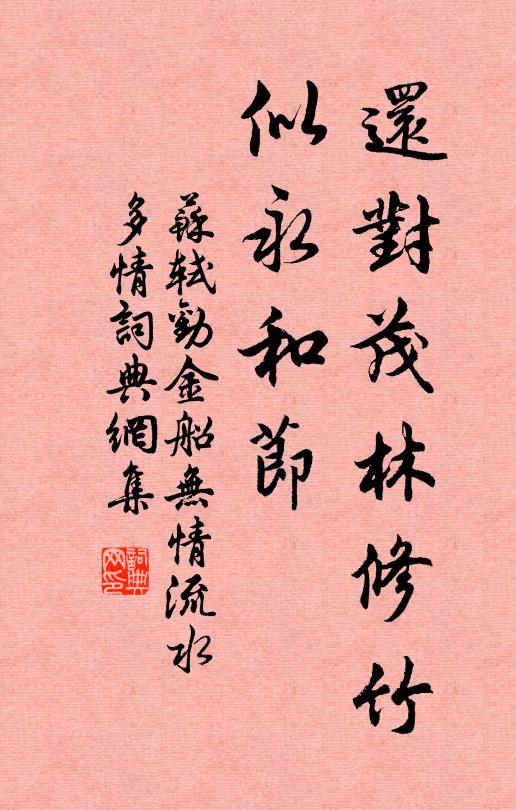 還對茂林修竹
似永和節
蘇軾勸金船無情流水
多情詞典網集
詞典網印